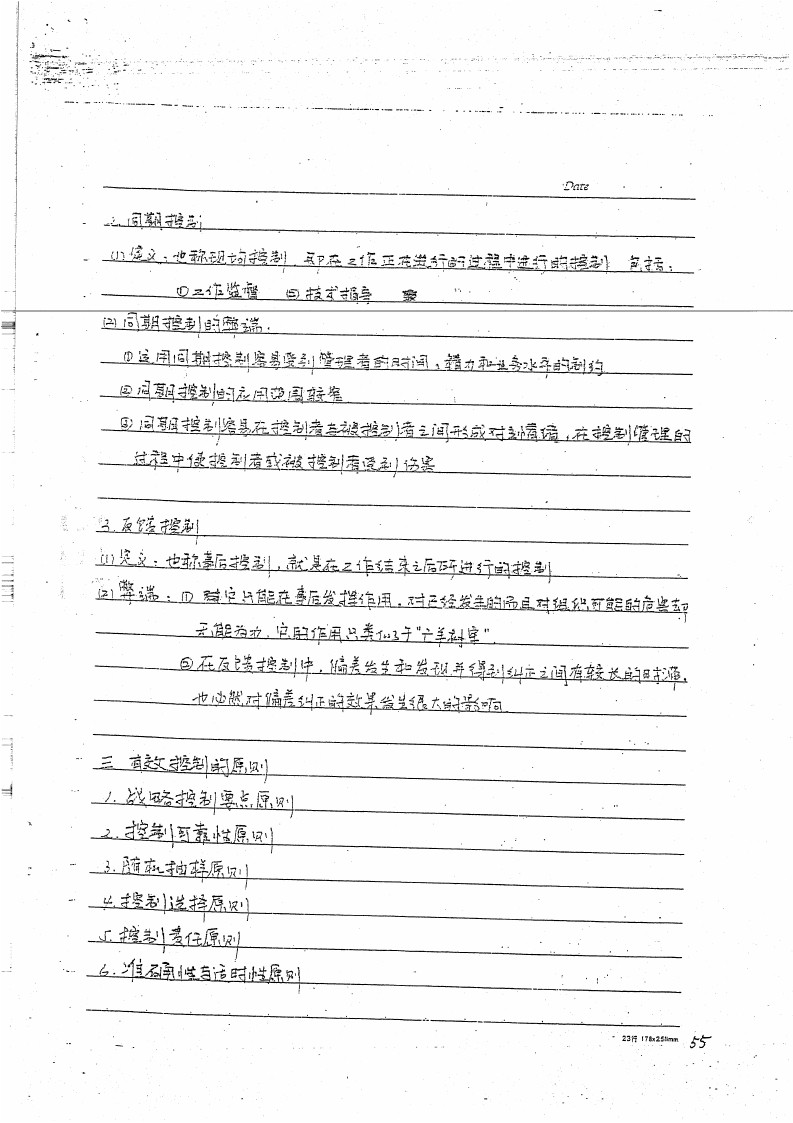 Date
2. 同期控制
(1) 定义：也称现场控制，即在工作正在进行的过程中进行的控制 包括：
①工作监督 ②技术指导
(2) 同期控制的弊端.
①运用同期控制容易受到管理者的时间，精力和业务水平的制约
②同期控制的应用范围较窄
③同期控制容易在控制者与被控制者之间形成对立情绪，在控制管理的
过程中使控制者或被控制者受到伤害
3. 反馈控制
(1) 定义：也称事后控制，就是在工作结束之后所进行的控制
(2) 弊端：① 它只能在事后发挥作用，对已经发生的而且对组织可能的危害却
无能为力，它的作用只类似于“亡羊补牢”.
②在反馈控制中，偏差发生和发现并得到纠正之间有较长的时滞，
也必然对偏差纠正的效果发生很大的影响
三 有效控制的原则
1. 战略控制要点原则
2. 控制可靠性原则
3. 随机抽样原则
4. 控制选择原则
5. 控制责任原则
6. 准确性与适时性原则
23行 178x251mm 55